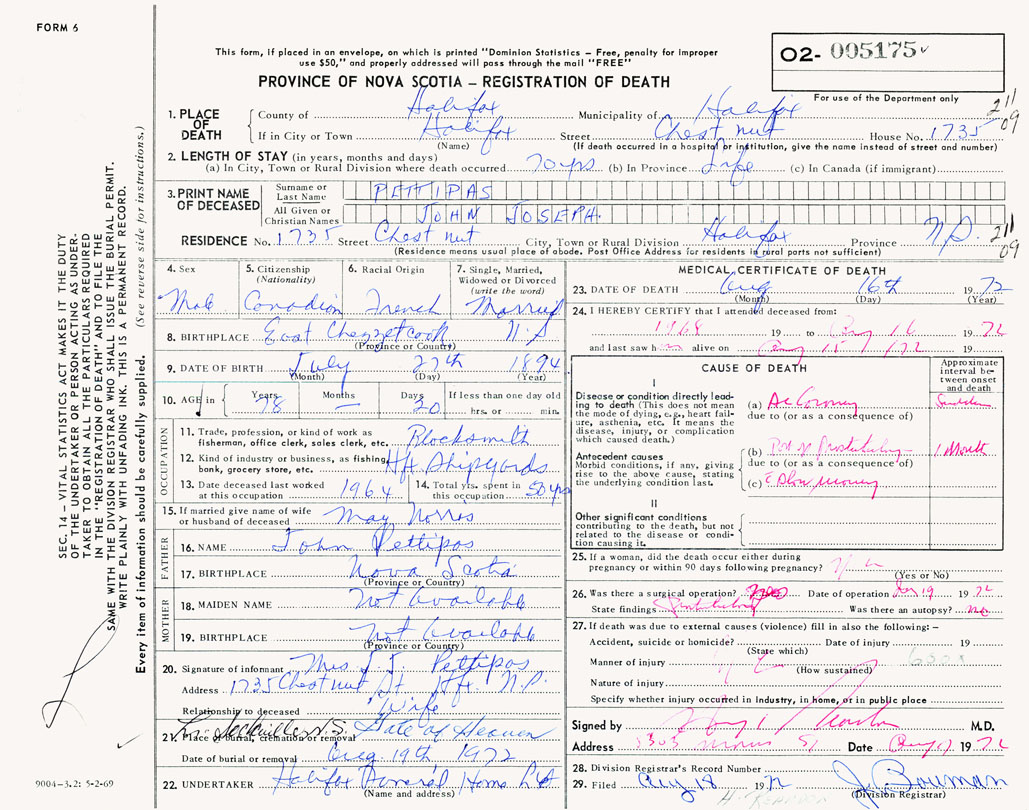 FORM 6
This form, if placed in an envelope, on which is printed "Dominion Statistics – Free, penalty for improper
use $50," and properly addressed will pass through the mail "FREE"
O2- 005175
For use of the Department only
PROVINCE OF NOVA SCOTIA – REGISTRATION OF DEATH
1. PLACE OF DEATH
County of Halifax Municipality of Halifax
211
09
If in City or Town Halifax Street Chestnut House No. 1735
(Name) (If death occurred in a hospital or institution, give the name instead of street and number)
2. LENGTH OF STAY (in years, months and days)
(a) In City, Town or Rural Division where death occurred 70 yrs (b) In Province Life (c) In Canada (if immigrant)
3. PRINT NAME OF DECEASED
Surname or Last Name PETTIPAS
All Given or Christian Names JOHN JOSEPH.
RESIDENCE No. 1735 Street Chestnut City, Town or Rural Division Halifax Province N.S.
211
09
(Residence means usual place of abode. Post Office Address for residents in rural parts not sufficient)
4. Sex
Male
5. Citizenship (Nationality)
Canadian
6. Racial Origin
French
7. Single, Married, Widowed or Divorced (write the word)
Married
8. BIRTHPLACE East Chezzetcook N.S
(Province or Country)
9. DATE OF BIRTH July 27th 1894
(Month) (Day) (Year)
10. AGE in Years 78 Months — Days 20 If less than one day old
hrs. or min.
OCCUPATION
11. Trade, profession, or kind of work as
fisherman, office clerk, sales clerk, etc. Blacksmith
12. Kind of industry or business, as fishing,
bank, grocery store, etc. Hfx Shipyards
13. Date deceased last worked
at this occupation 1964
14. Total yrs. spent in
this occupation 50 yrs
15. If married give name of wife
or husband of deceased May Norris
FATHER
16. NAME John Pettipas
17. BIRTHPLACE Nova Scotia
(Province or Country)
MOTHER
18. MAIDEN NAME Not Available
19. BIRTHPLACE Not Available
(Province or Country)
20. Signature of informant Mrs J. J. Pettipas
Address 1735 Chestnut St Hfx. N.S.
Relationship to deceased Wife
21. Place of burial, cremation or removal Lr. Sackville N.S. Gate of Heaven
Date of burial or removal Aug. 19th 1972
22. UNDERTAKER Halifax Funeral Home Ltd
(Name and address)
MEDICAL CERTIFICATE OF DEATH
23. DATE OF DEATH Aug 16th 1972
(Month) (Day) (Year)
24. I HEREBY CERTIFY that I attended deceased from:
1968 19 to Aug 16 1972
and last saw him alive on Aug 15/72 19
CAUSE OF DEATH
Approximate interval between onset and death
I
Disease or condition directly leading to death (This does not mean the mode of dying, e.g., heart failure, asthenia, etc. It means the disease, injury, or complication which caused death.)
(a) Ac Coronary Sudden
due to (or as a consequence of)
Antecedent causes
Morbid conditions, if any, giving rise to the above cause, stating the underlying condition last.
(b) 1 Month
due to (or as a consequence of)
(c)
II
Other significant conditions
contributing to the death, but not
related to the disease or condition causing it.
25. If a woman, did the death occur either during
pregnancy or within 90 days following pregnancy?
(Yes or No)
26. Was there a surgical operation? Date of operation 19 1972
State findings Was there an autopsy? no
27. If death was due to external causes (violence) fill in also the following: –
Accident, suicide or homicide? Date of injury 19
(State which)
Manner of injury
(How sustained)
Nature of injury
Specify whether injury occurred in Industry, in home, or in public place
Signed by M.D.
Address Morris St Date Aug 1972
28. Division Registrar's Record Number
29. Filed Aug 18 1972 J. Bowman
(Division Registrar)
SEC. 14 – VITAL STATISTICS ACT MAKES IT THE DUTY
OF THE UNDERTAKER OR PERSON ACTING AS UNDERTAKER
TO OBTAIN ALL THE PARTICULARS REQUIRED
IN THE "REGISTRATION OF DEATH" AND TO FILE THE
SAME WITH THE DIVISION REGISTRAR WHO SHALL ISSUE THE BURIAL PERMIT.
WRITE PLAINLY WITH UNFADING INK. THIS IS A PERMANENT RECORD.
Every item of information should be carefully supplied. (See reverse side for instructions.)
9004-3.2: 5-2-69